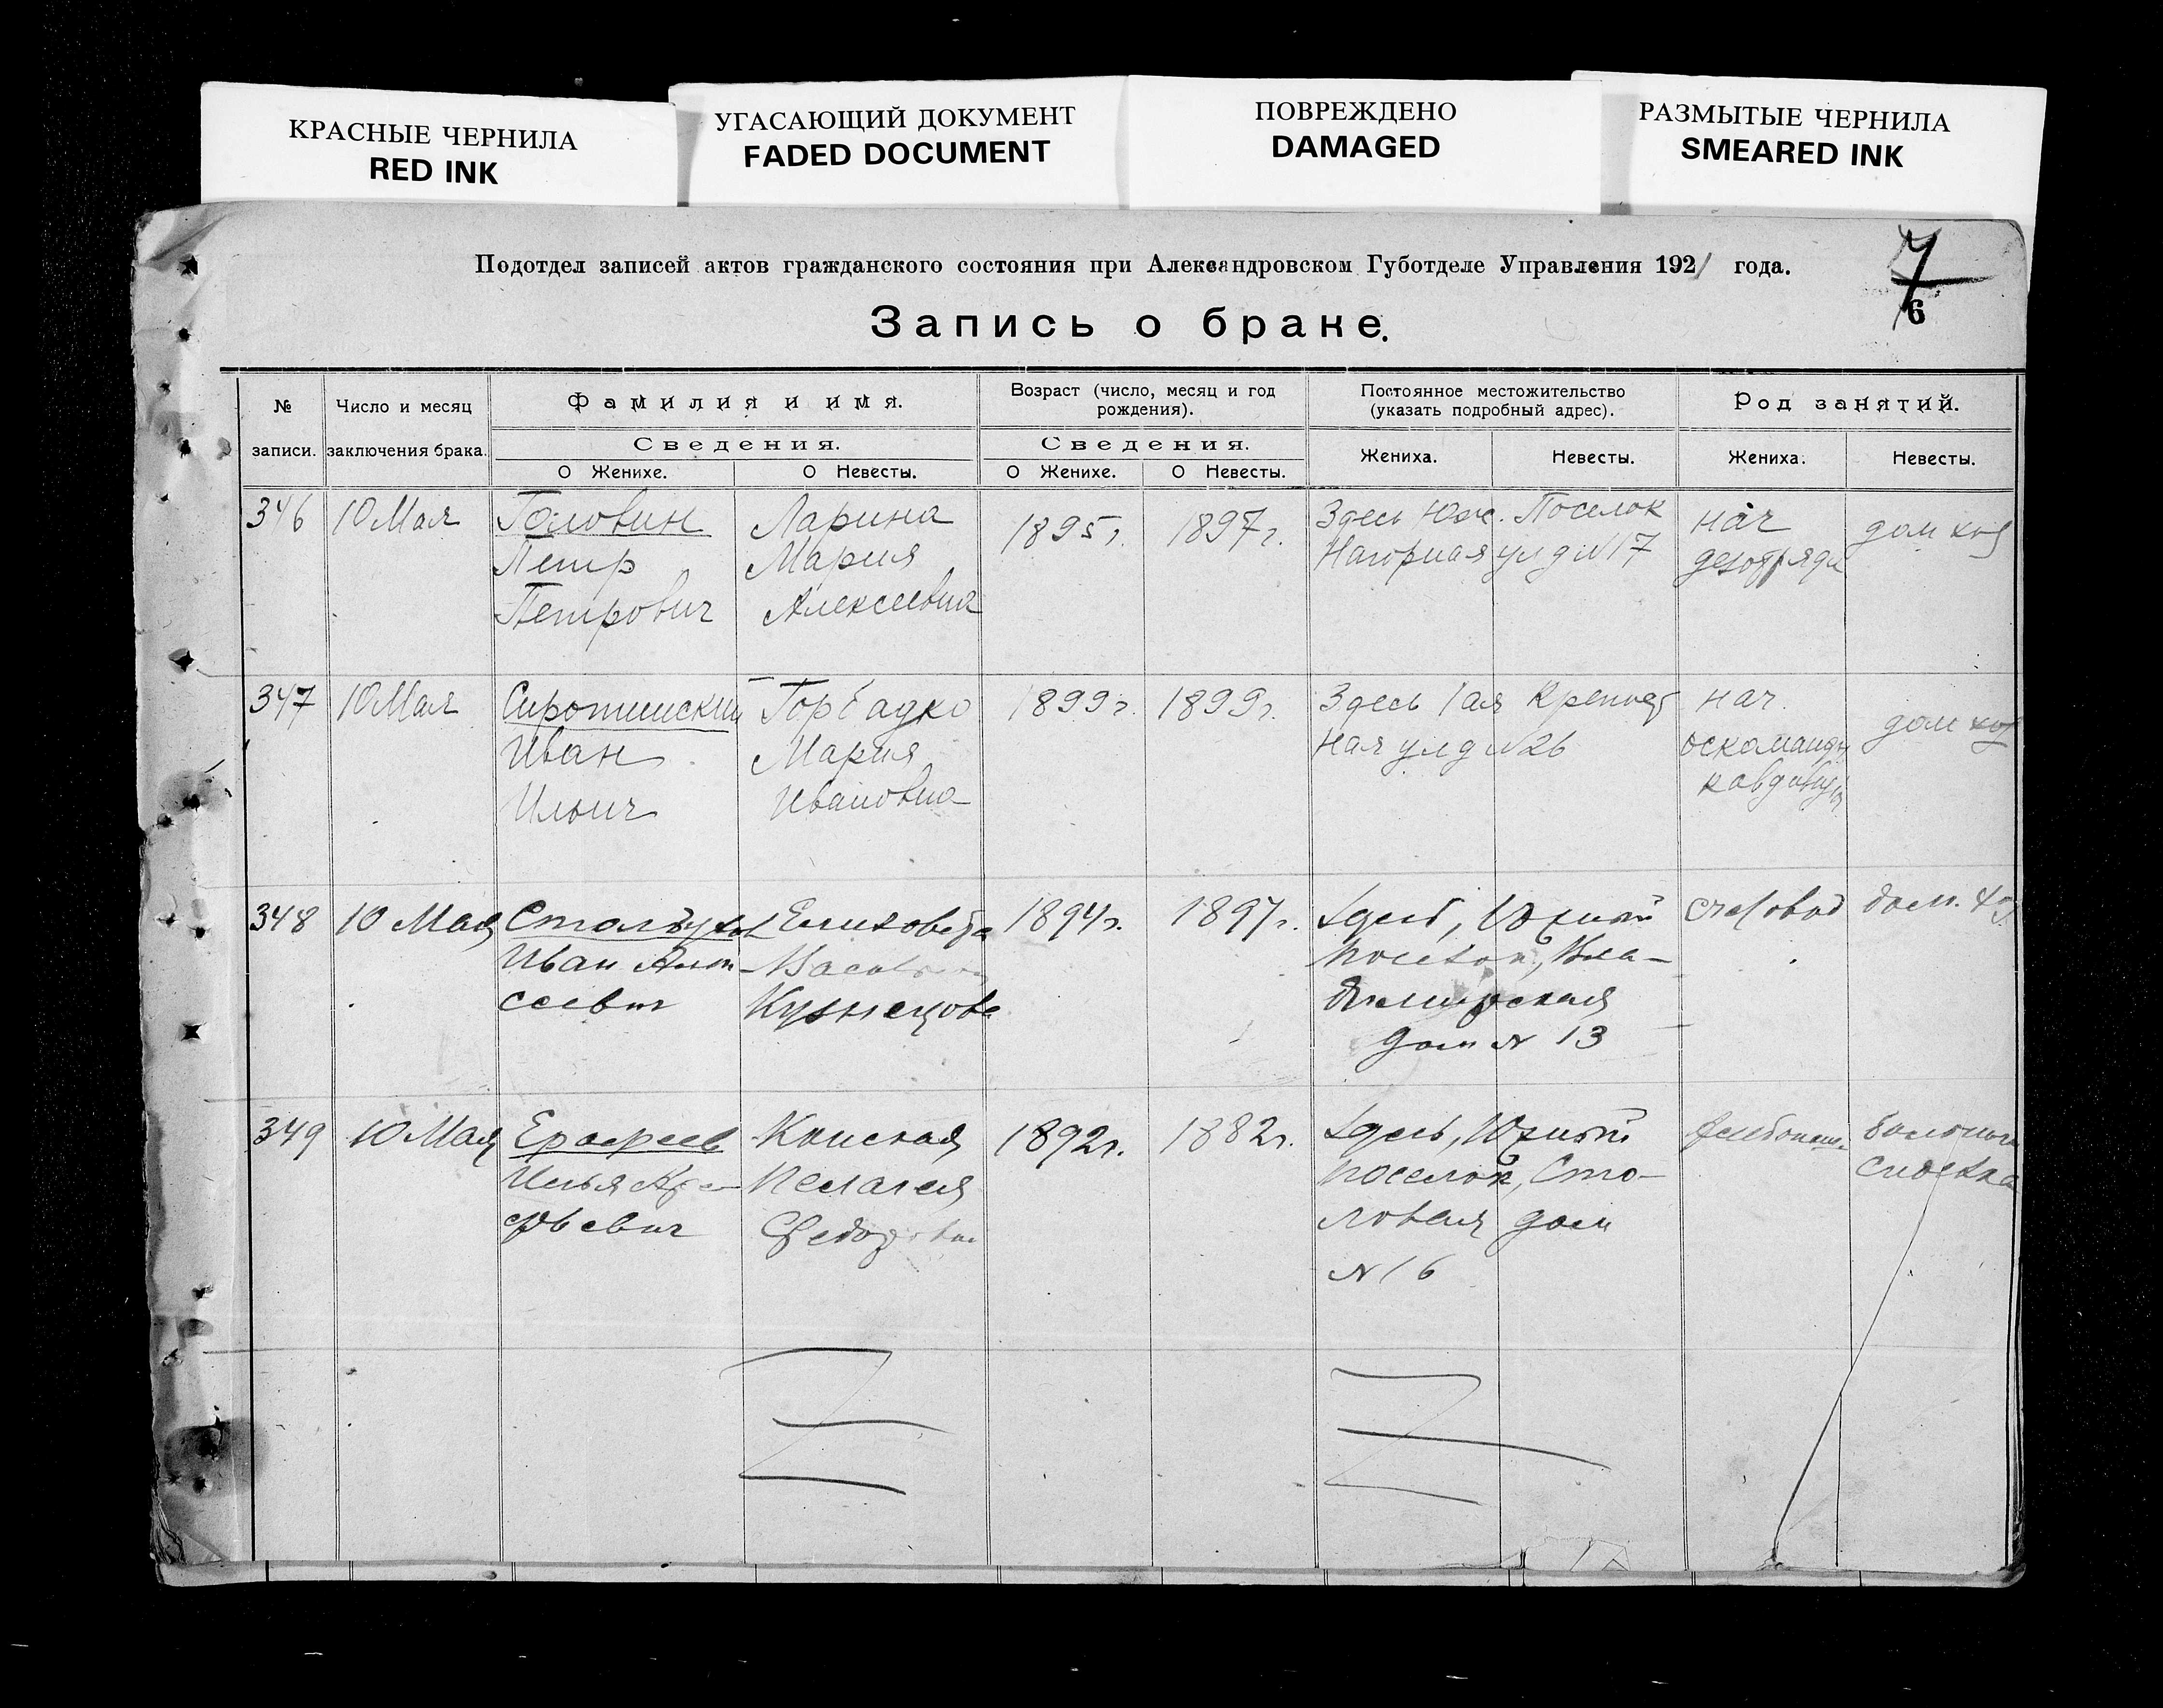 КРАСНЫЕ ЧЕРНИЛА
RED INK
УГАСАЮЩИЙ ДОКУМЕНТ
FADED DOCUMENT
ПОВРЕЖДЕНО
DAMAGED
РАЗМЫТЫЕ ЧЕРНИЛА
SMEARED INK
7
6
Подотдел записей актов гражданского состояния при Александровском Губотделе Управления 1921 года.
Запись о браке.
№ записи.
Число и месяц заключения брака.
Фамилия и имя.
Сведения.
О Женихе.
О Невесты.
Возраст (число, месяц и год рождения).
Сведения.
О Женихе.
О Невесты.
Постоянное местожительство
(указать подробный адрес).
Жениха.
Невесты.
Род занятий.
Жениха.
Невесты.
346
10 Мая
Головин
Петр
Петрович
Ларина
Мария
Алексеевна
1895г.
1897г.
Здесь Юж. Поселок
Нагорная ул д N17
нач
дом хоз
347
10 Мая
Сиротинский
Иван
Ильич
Мария
Ивановна
1899г.
1899г.
Здесь 1ая Крепост
ная ул д N26
нач.
дом хоз
348
10 Мая
Иван Алек
сеевич
Елизавета
Кузнецова
1894г.
1897г.
Здесь, Южный
поселок, Вла-
димирская
дом N 13
счетовод
дом. хоз
349
10 Мая
Ерофеев
Илья
Пелагея
Федоровна
1892г.
1882г.
Здесь, Южный
поселок, Сто-
ловая дом
N 16